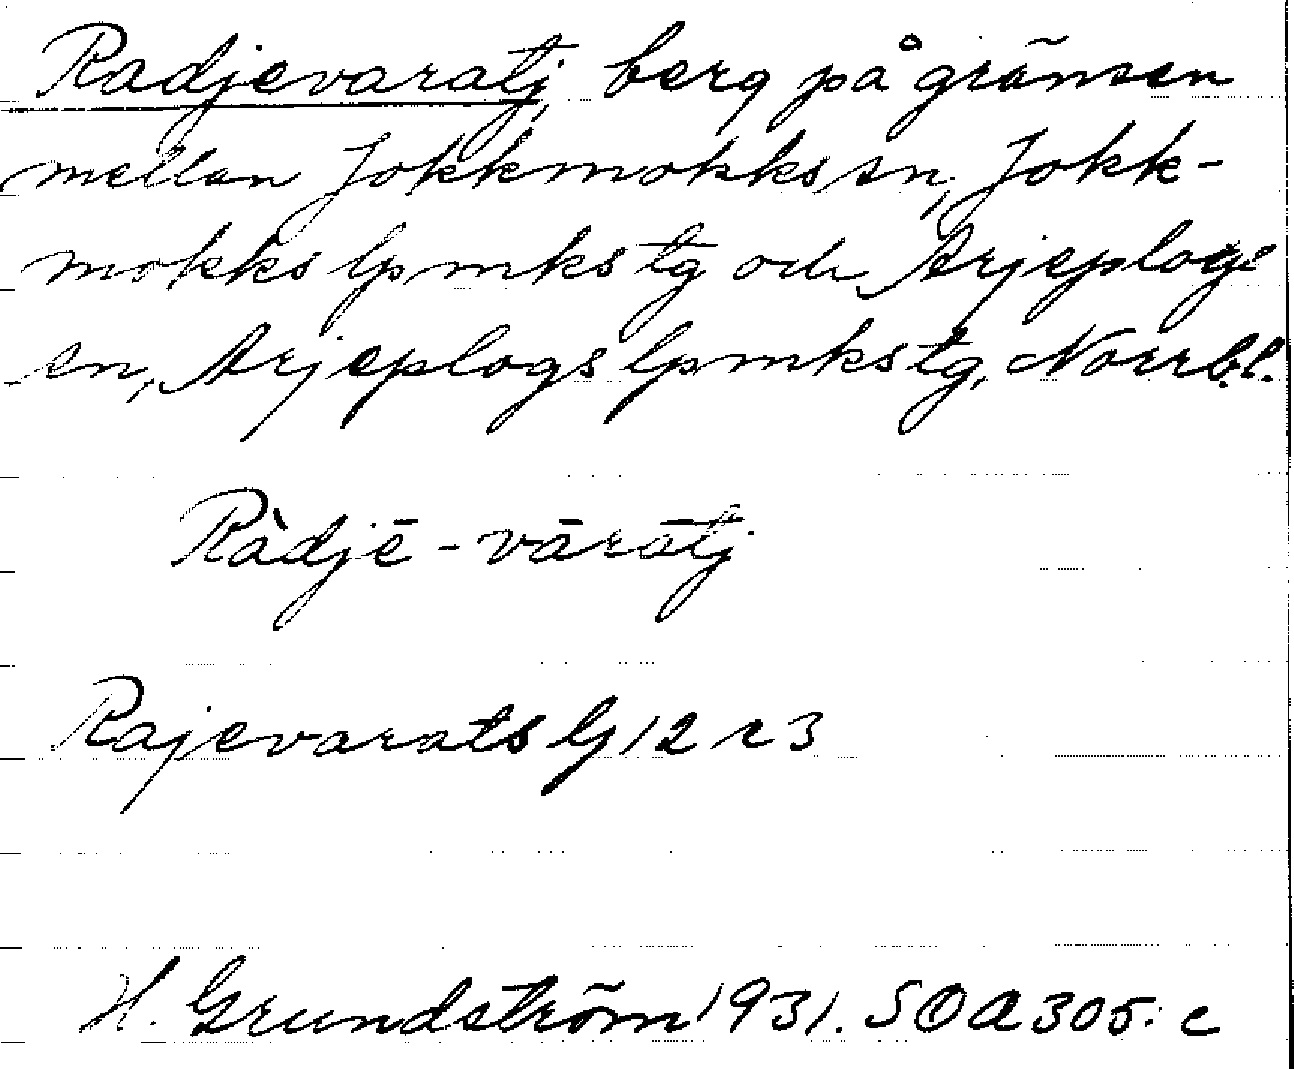 Radjevaratj, berg på gränsen
mellan Jokkmokks sn, Jokk-
mokks lpmkstg och Arjeplogs
sn, Arjeplogs lpmkstg, Norrb.l.
Ràdjē-vāràtj
Rajevarats G 12 r 3
H. Grundström 1931. SOA 305: c